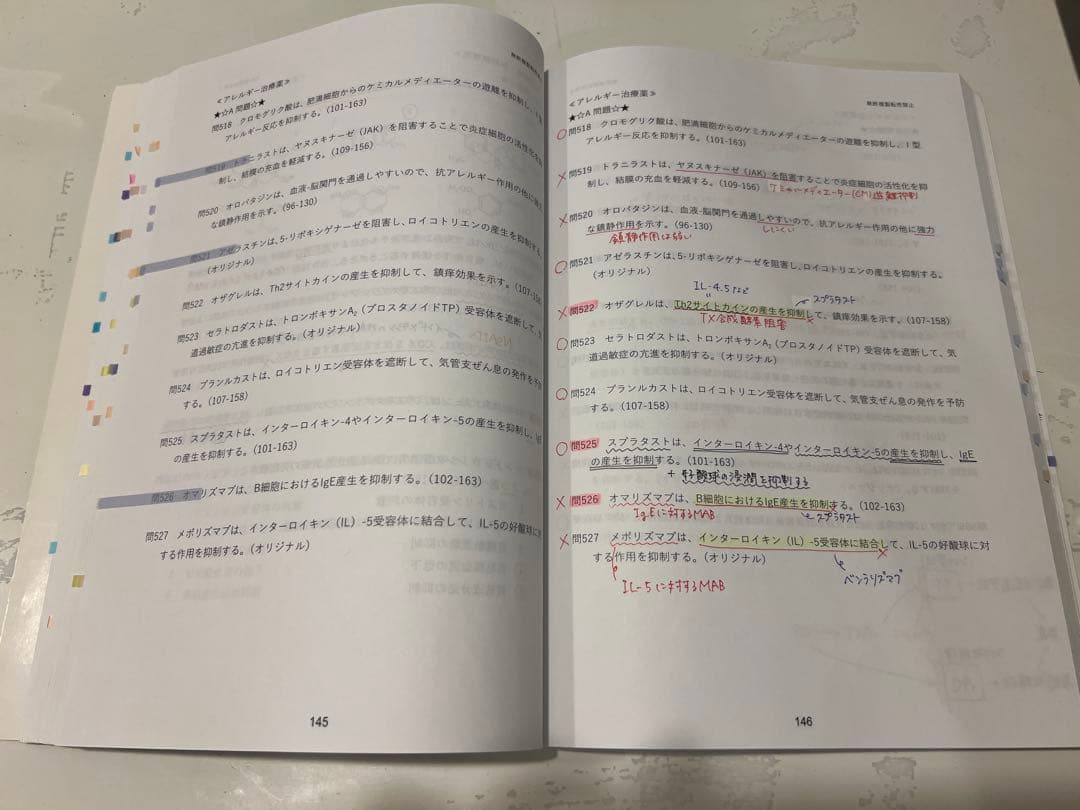 ≪アレルギー治療薬≫
★☆A 問題☆★
問518 クロモグリク酸は、肥満細胞からのケミカルメディエーターの遊離を抑制し、I型
アレルギー反応を抑制する。(101-163)
問519 トラニラストは、ヤヌスキナーゼ（JAK）を阻害することで炎症細胞の活性化を抑
制し、結膜の充血を軽減する。(109-156)
問520 オロパタジンは、血液-脳関門を通過しやすいので、抗アレルギー作用の他に強力
な鎮静作用を示す。(96-130)
問521 アゼラスチンは、5-リポキシゲナーゼを阻害し、ロイコトリエンの産生を抑制する。
(オリジナル)
問522 オザグレルは、Th2サイトカインの産生を抑制して、鎮痒効果を示す。(107-158)
問523 セラトロダストは、トロンボキサンA₂（プロスタノイドTP）受容体を遮断して、
道過敏症の亢進を抑制する。(オリジナル)
問524 プランルカストは、ロイコトリエン受容体を遮断して、気管支ぜん息の発作を予防
する。(107-158)
問525 スプラタストは、インターロイキン-4やインターロイキン-5の産生を抑制し、IgE
の産生を抑制する。(101-163)
問526 オマリズマブは、B細胞におけるIgE産生を抑制する。(102-163)
問527 メポリズマブは、インターロイキン（IL）-5受容体に結合して、IL-5の好酸球に対
する作用を抑制する。(オリジナル)
145
≪アレルギー治療薬≫
無断複製転売禁止
★☆A 問題☆★
○問518 クロモグリク酸は、肥満細胞からのケミカルメディエーターの遊離を抑制し、I型
アレルギー反応を抑制する。(101-163)
×問519 トラニラストは、ヤヌスキナーゼ（JAK）を阻害することで炎症細胞の活性化を抑
制し、結膜の充血を軽減する。(109-156) ケミカルメディエーター(CM)遊離抑制
×問520 オロパタジンは、血液-脳関門を通過しやすいので、抗アレルギー作用の他に強力
しにくい
な鎮静作用を示す。(96-130)
鎮静作用は弱い
○問521 アゼラスチンは、5-リポキシゲナーゼを阻害し、ロイコトリエンの産生を抑制する。
(オリジナル)
IL-4.5など
スプラタスト
×問522 オザグレルは、Th2サイトカインの産生を抑制して、鎮痒効果を示す。(107-158)
TX合成酵素阻害
○問523 セラトロダストは、トロンボキサンA₂（プロスタノイドTP）受容体を遮断して、気
道過敏症の亢進を抑制する。(オリジナル)
○問524 プランルカストは、ロイコトリエン受容体を遮断して、気管支ぜん息の発作を予防
する。(107-158)
○問525 スプラタストは、インターロイキン-4やインターロイキン-5の産生を抑制し、IgE
の産生を抑制する。(101-163)
+ 好酸球の浸潤を抑制する
×問526 オマリズマブは、B細胞におけるIgE産生を抑制する。(102-163)
IgEに対するMAB
スプラタスト
×問527 メポリズマブは、インターロイキン（IL）-5受容体に結合して、IL-5の好酸球に対
する作用を抑制する。(オリジナル)
ベンラリズマブ
IL-5に対するMAB
146